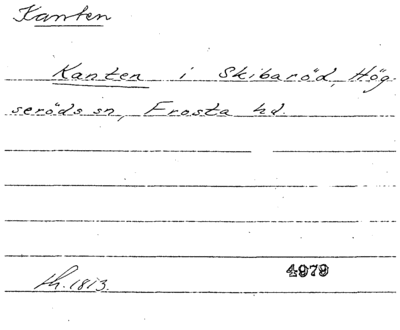 Kanten
Kanten i Skibaröd, Hög-
seröds sn, Frosta hd.
4979